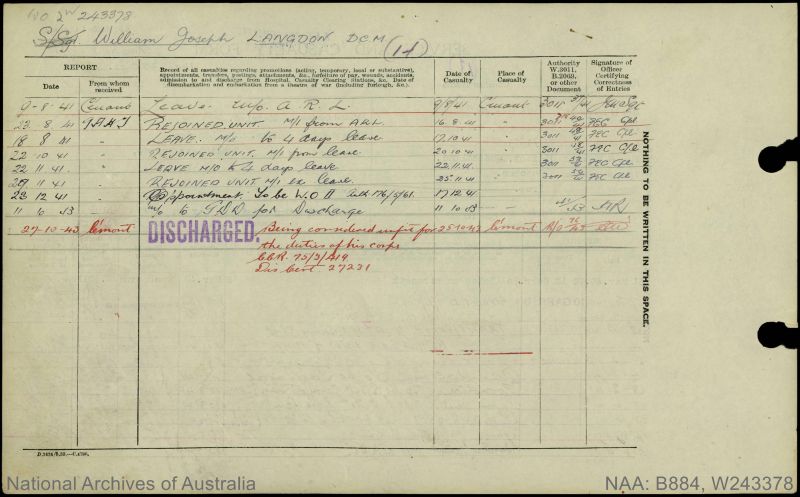 WO 2 W243378
S/Sgt. William Joseph LANGDON DCM (14)
REPORT
Date
From whom received
Record of all casualties regarding promotions (acting, temporary, local or substantive), appointments, transfers, postings, attachments, &c., forfeiture of pay, wounds, accidents, admission to and discharge from Hospital, Casualty Clearing Stations, &c. Date of disembarkation and embarkation from a theatre of war (including furlough, &c.).
Date of Casualty
Place of Casualty
Authority W.3011, B.2069, or other Document
Signature of Officer Certifying Correctness of Entries
9-8-41 Leave M/o A R L 9/8/41 3011
22 8 41 REJOINED UNIT M/I from ARL 16.8.41 " 3011
18 8 41 " LEAVE M/O to 4 days leave 17.10.41 " 3011
22 10 41 " REJOINED UNIT M/I from leave 20.10.41 " 3011
22 11 41 " LEAVE M/O to 4 days leave 22.11.41 " 3011
29 11 41 " REJOINED UNIT M/I ex leave 25.11.41 " 3011
23 12 41 " Appointment. To be W.O II 17.12.41 "
11 10 43 M/O to GDD for Discharge 11 10 43 -
27-10-43 C'mont DISCHARGED. Being considered unfit for 25-10-43 C'mont
the duties of his corps
75/3/419
Dis Cert 27231
NOTHING TO BE WRITTEN IN THIS SPACE.
National Archives of Australia
NAA: B884, W243378